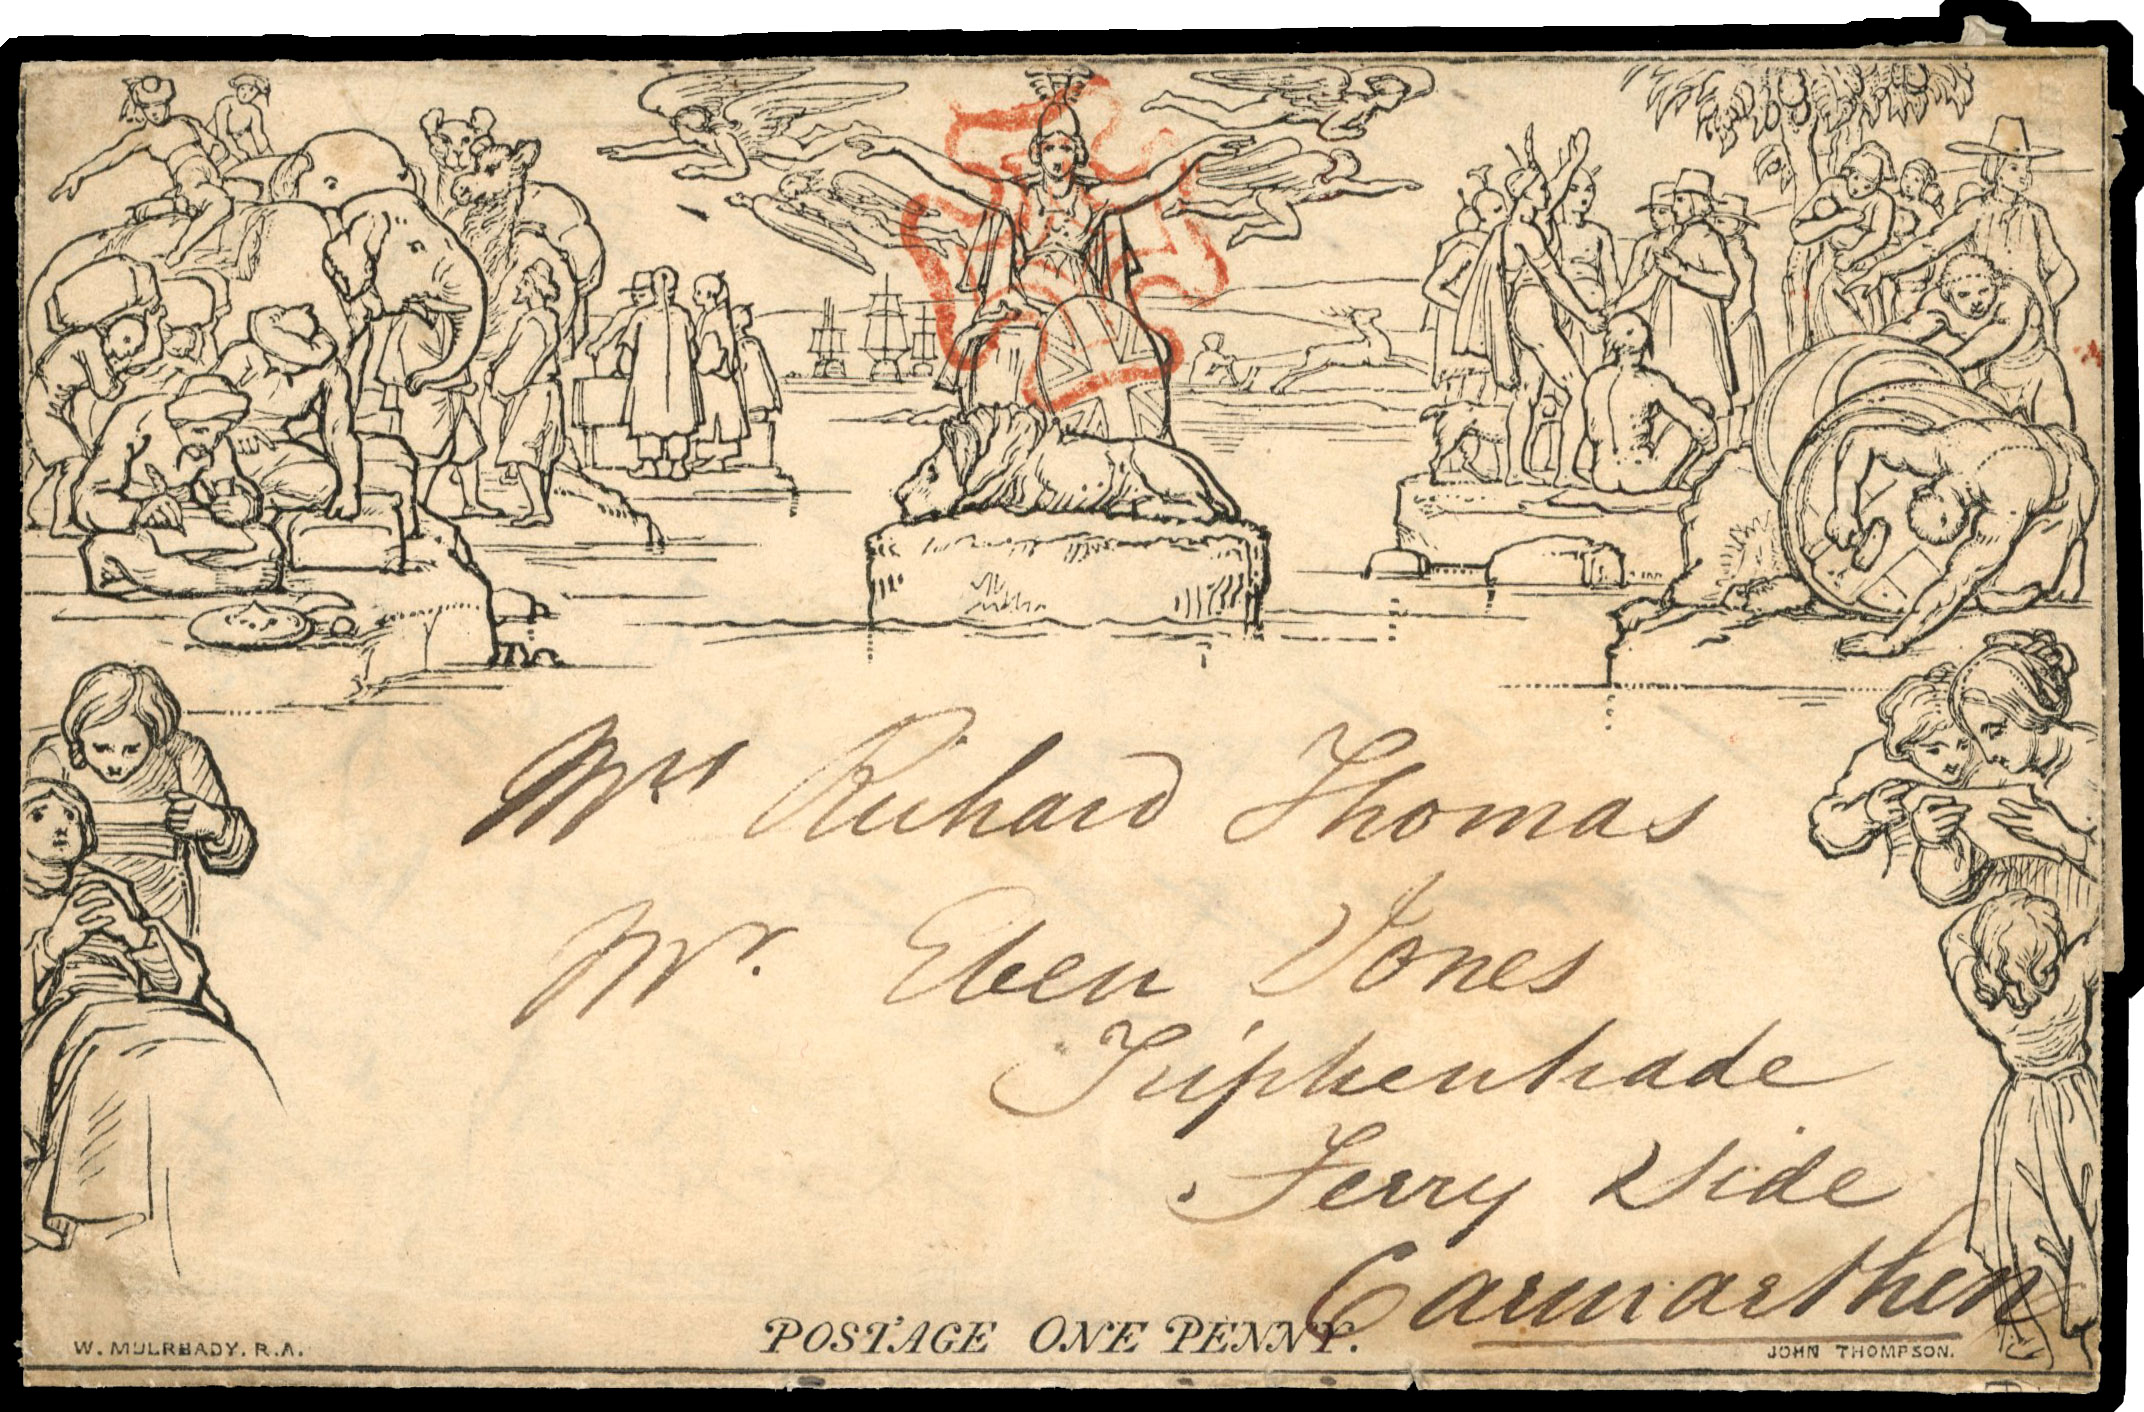 Mrs Richard Thomas
Mr. Eben Jones
Ferry Side
Carmarthen
POSTAGE ONE PENNY.
W. MULREADY. R.A.
JOHN THOMPSON.